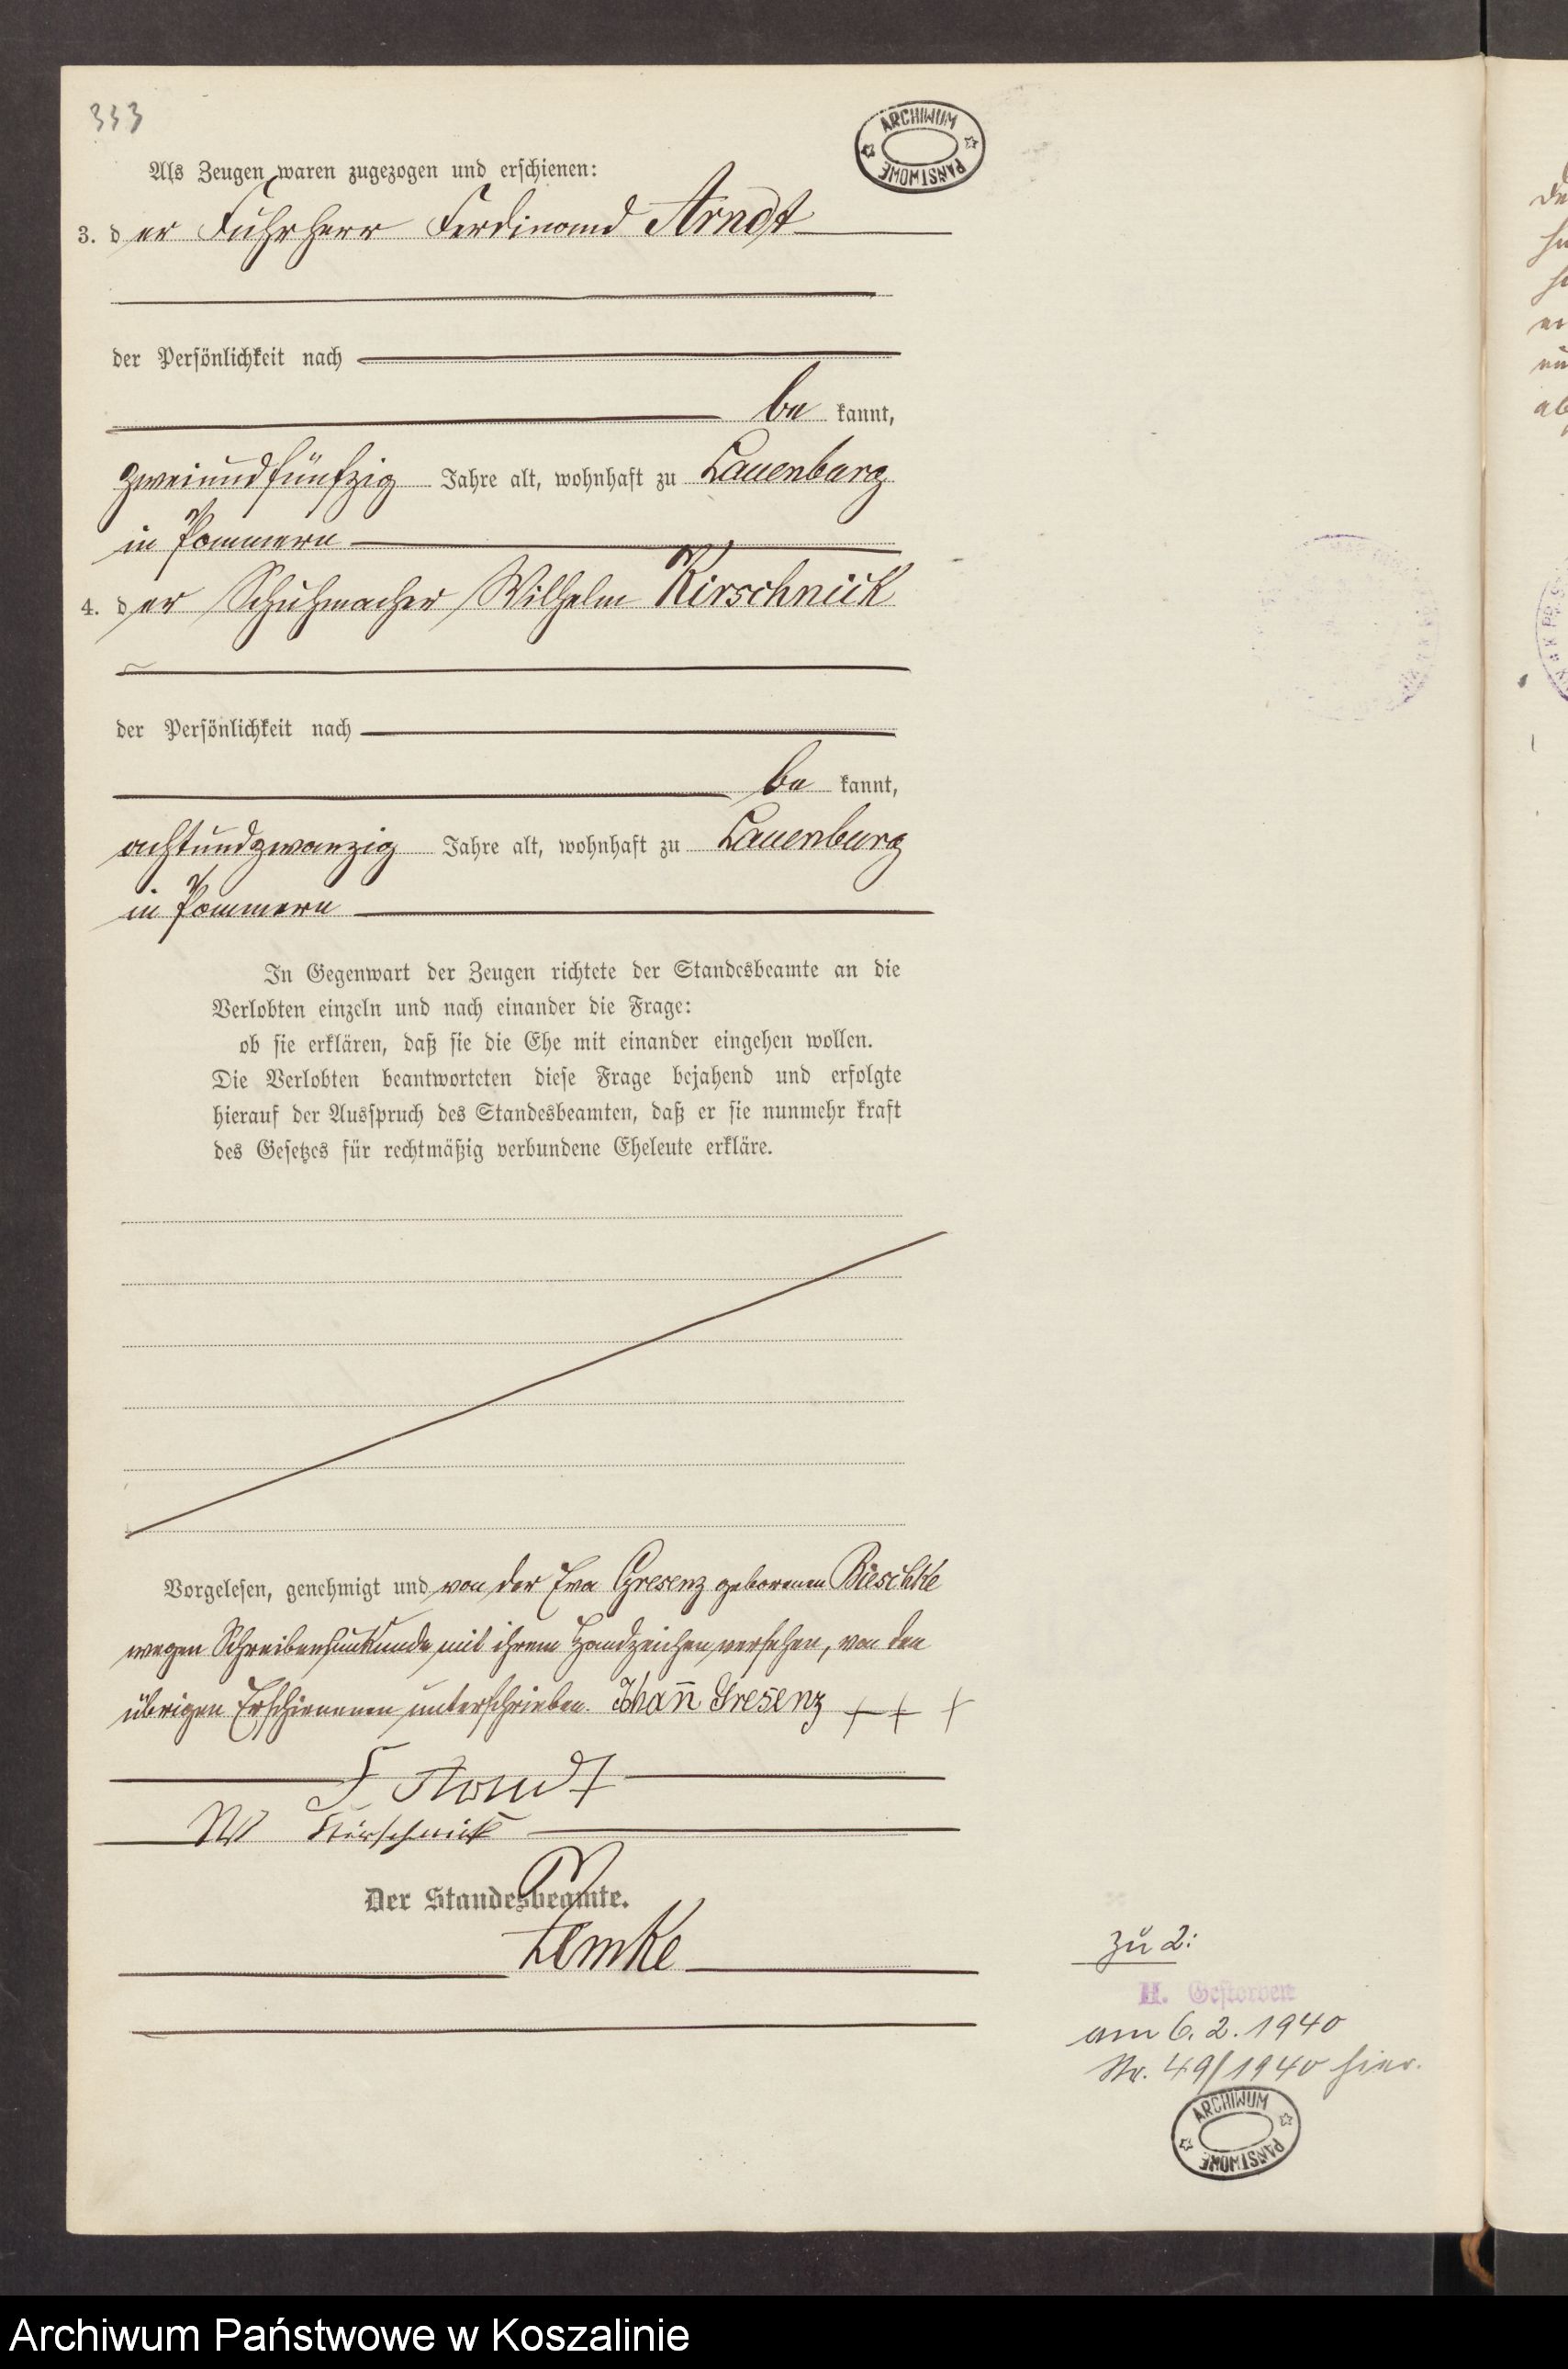 333
ARCHIWUM PAŃSTWOWE
Als Zeugen waren zugezogen und erschienen:
3. der Fuhrherr Ferdinand Arndt
der Persönlichkeit nach
be kannt,
zweiundfünfzig Jahre alt, wohnhaft zu Lauenburg
in Pommern
4. der Schuhmacher Wilhelm Kirschnick
der Persönlichkeit nach
be kannt,
achtundzwanzig Jahre alt, wohnhaft zu Lauenburg
in Pommern
In Gegenwart der Zeugen richtete der Standesbeamte an die
Verlobten einzeln und nach einander die Frage:
ob sie erklären, daß sie die Ehe mit einander eingehen wollen.
Die Verlobten beantworteten diese Frage bejahend und erfolgte
hierauf der Ausspruch des Standesbeamten, daß er sie nunmehr kraft
des Gesetzes für rechtmäßig verbundene Eheleute erkläre.
Vorgelesen, genehmigt und von der Eva Gresenz geborenen Bieschke
wegen Schreibensunkunde mit ihrem Handzeichen versehen, von den
übrigen Erschienenen unterschrieben. Johann Gresenz + + +
F Arndt
W Kirschnick
Der Standesbeamte.
Lemke
zu 2:
H. Gestorben
am 6. 2. 1940
Nr. 49/1940 hier.
ARCHIWUM PAŃSTWOWE
Archiwum Państwowe w Koszalinie